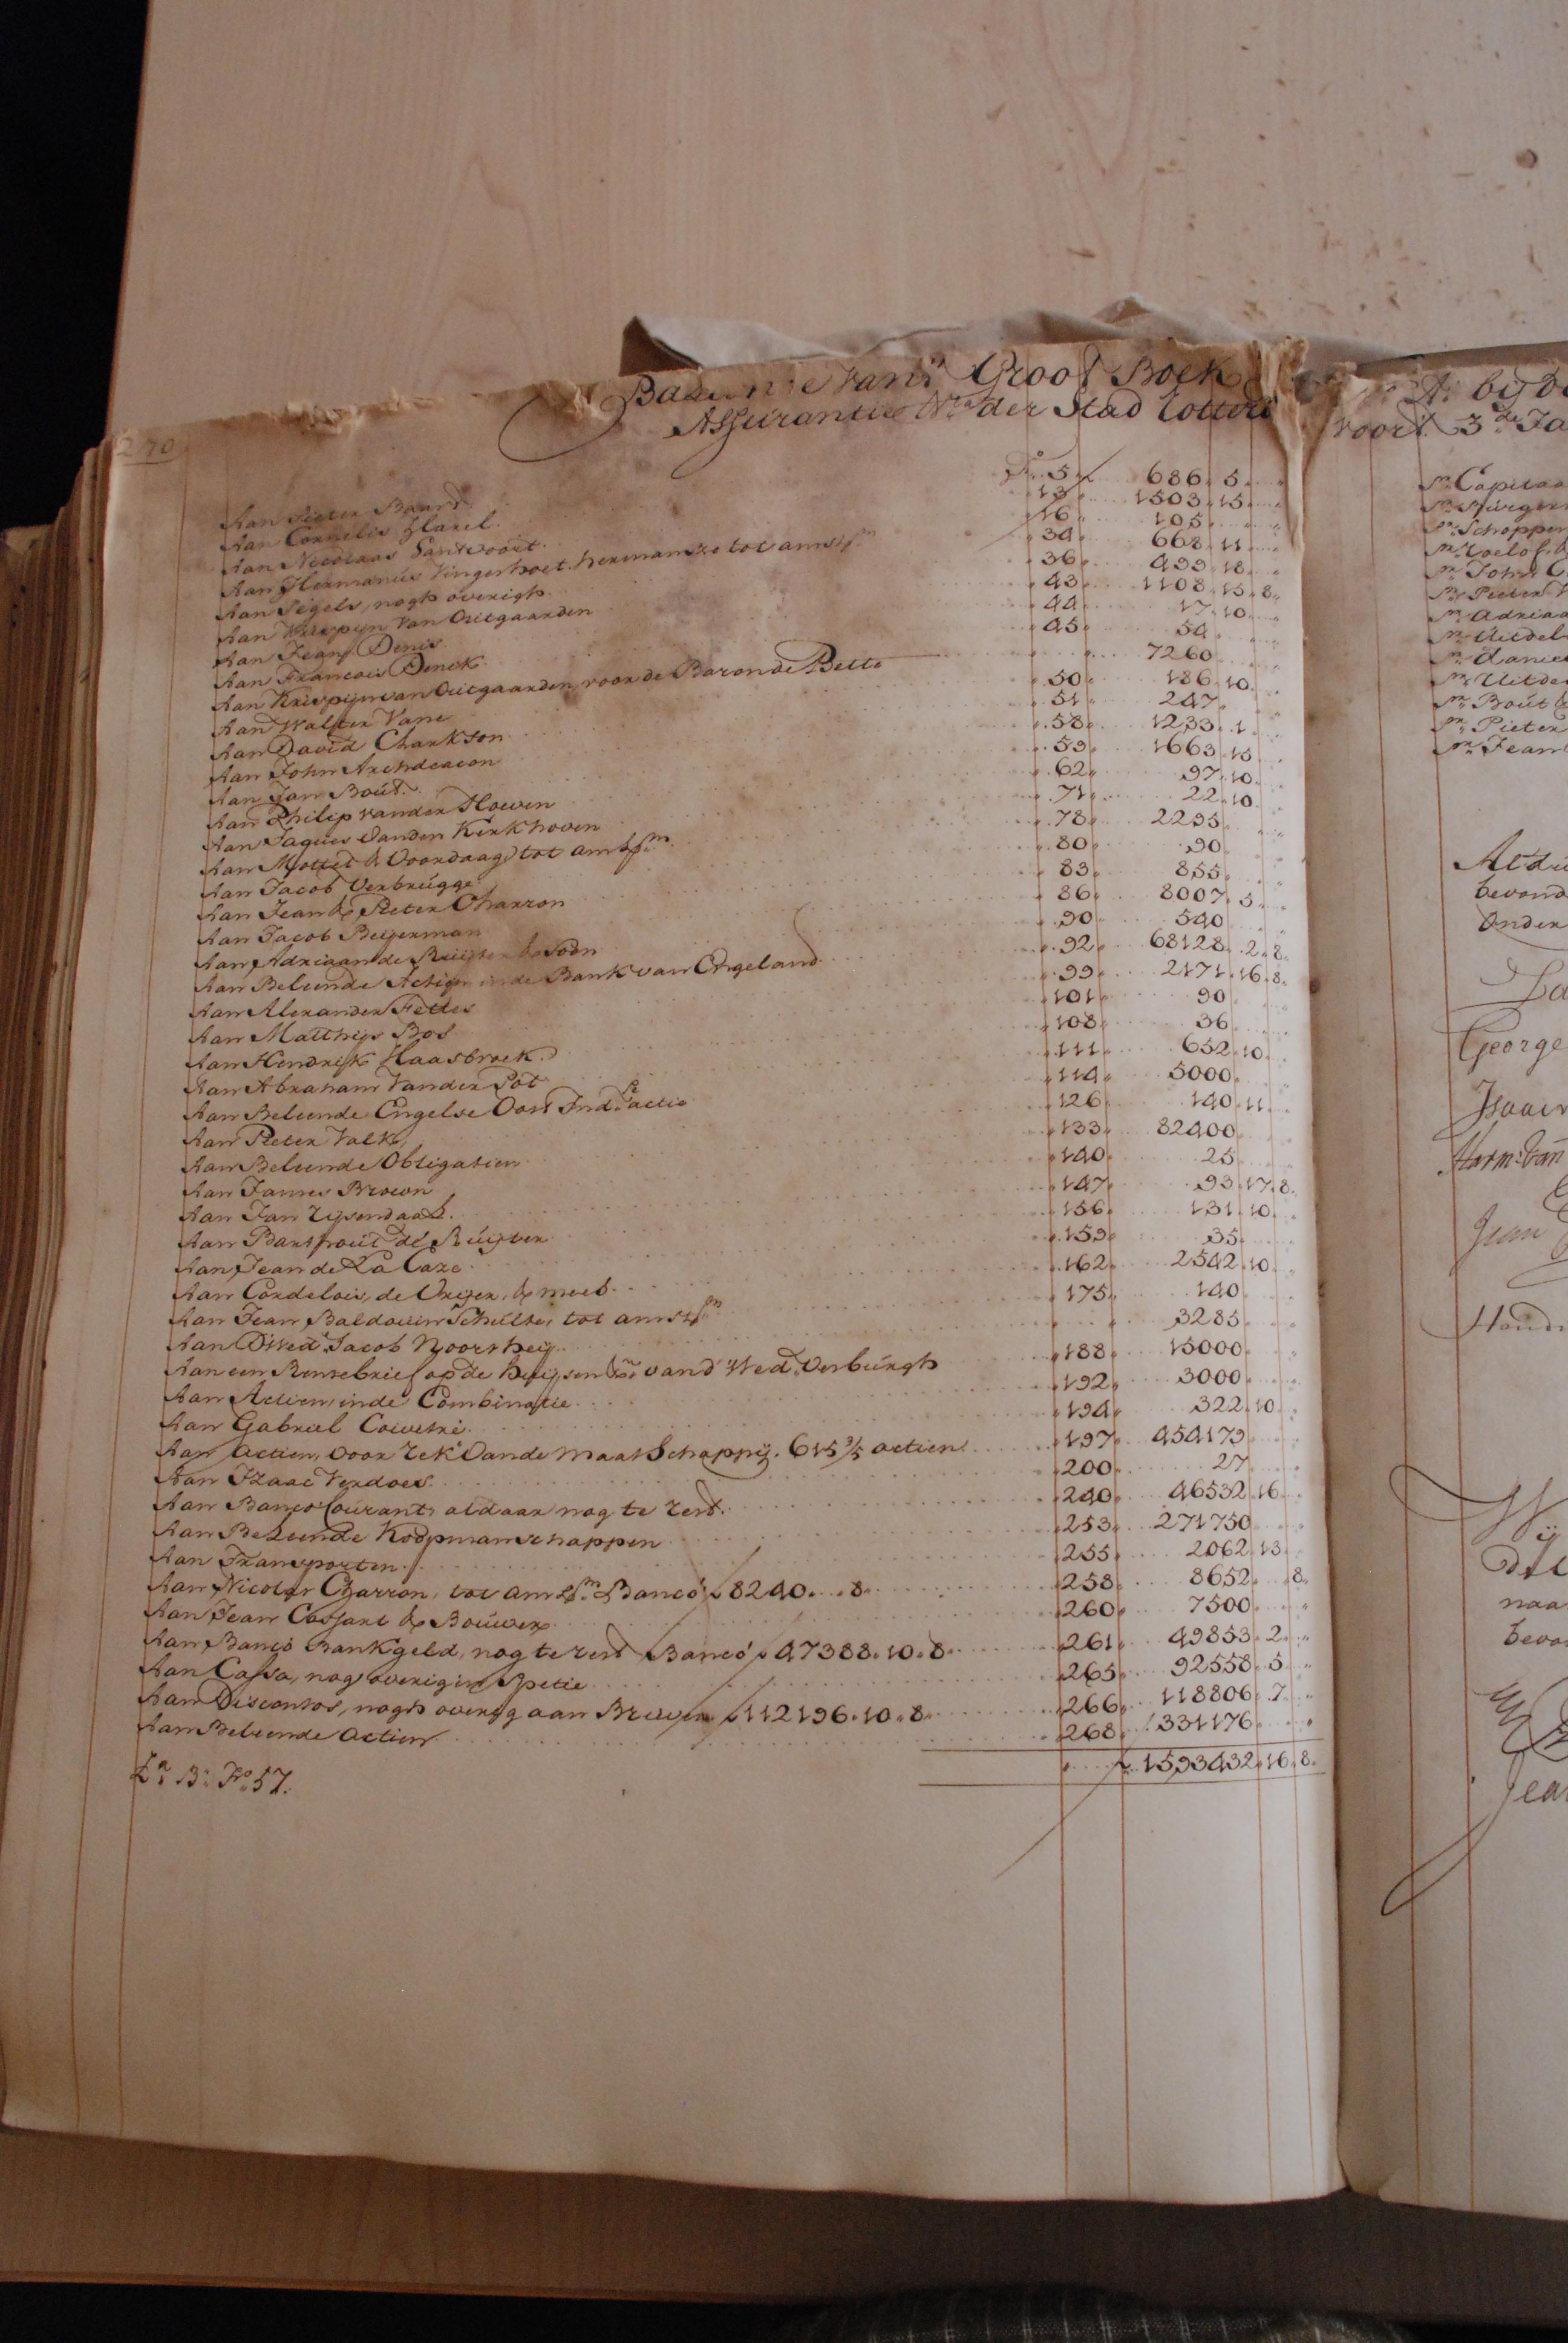 270
Balance van't Groot Boek
Assurantie der Stad Rotterd
Aan Pieter Baard Fo. 5 686. 5.
Aan Cornelis Harel. 13 1503. 15.
Aan Nicolaas Santvoort 16 105.
Aan Hermanus Vingerhoet hermansz: tot amstm 34 668. 11.
Aan Segels, nogh overigh. 36 499. 18.
Aan Krispijn van Outgaarden 43 1108. 15. 8.
Aan Jean Denis 44 17. 10.
Aan Francois Dinck 45 54.
Aan Krispijn van Outgaarden, voor de Baron de Bette 7260
Aan Walter Vane 50 186. 10.
Aan David Clarkson 51 247.
Aan John Archdeacon 58 1233. 1.
Aan Jan Bout. 59 1663. 15
Aan Philip vander Hoeven 62 97. 10.
Aan Jaques vanden Kerkhoven 71 22. 10.
Aan Mottet & Voordaagh tot amstm. 78 2295.
Aan Jacob Verbrugge 80 90.
Aan Jean & Pieter Charron 83 855.
Aan Jacob Beijerman 86 8007. 5.
Aan Adriaan de Ruijter & Soon 90 540
Aan Beleende Actien in de Bank van Engeland 92 68128. 2. 8.
Aan Alexander Fettes 99 2171. 16. 8.
Aan Matthijs Bos 101 90
Aan Hendrik Haasbroek. 108 36
Aan Abraham Vander Pot 111 652. 10.
Aan Beleende Engelse Oost Indse actie 114 5000.
Aan Pieter Valk 126 140. 11.
Aan Beleende Obligatien 133 82400.
Aan James Brown 140 25.
Aan Jan Zijsendaal. 147 93. 17. 8.
Aan de Ruijter 156 131. 10.
Aan Jean de La Caze 159 35.
Aan Cordelois, de Vrijer, & meeb. 162 2542. 10.
Aan Jean Baldouin Schulte, tot amstm 175 140.
Aan D'Wed: Jacob Noorthey 3285.
Aan een Rentebrief op de huijsen van d'Wed: Verburgh 188 15000.
Aan Actien in de Combinatie 192 3000.
Aan Gabriel 194 322. 10.
Aan Actien, voor Rek: vande Maatschappij. 615 3/5 actien 197 454179
Aan Izaac Verdoes. 200 27
Aan Banco Courant, aldaar nog te rest. 240 46532. 16.
Aan Beleende Koopmanschappen 253 271750
Aan Transporten 255 2062. 13
Aan Nicolas Charron, tot amstm. Banco ƒ 8240. . 8. 258 8652. . 8.
Aan Jean Cossart & Bouwer 260 7500
Aan Banco Bankgeld, nog te rest Banco ƒ 47388. 10. 8. 261 49853. 2.
Aan Cassa, nog overig in Spetie 265 92558. 5
Aan Discontos, nogh overig aan Brieven ƒ 112196. 10. 8. 266 118806. 7.
Aan Beleende Actien 268 331176
La. B: Fo. 57. ƒ 1593432. 16. 8.
A: bij de
voort 3de Ja
Pr. Capitaa
Pr. Schoppen
Pr. Roelof
Pr. John C
Pr. Pieter V
Pr. Adriaa
Pr. Uitdel
Pr. Danie
Pr. Uitde
Pr. Bout &
Pr. Pieter
Pr. Jean
Aldu
bevond
Onder
George
Isaac
Harm: van
Jean
Hend
Wij
Dit
naa
bevo
Jea